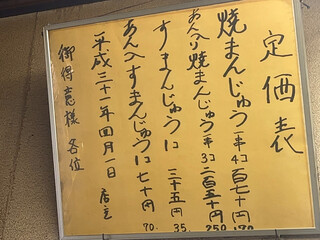 定価表
焼まんじゅう 一串4コ 百七十円 170
あん入り焼まんじゅう 一串3コ 二百五十円 250
すまんじゅう 1コ 三十五円 35.
あん入すまんじゅう 1コ 七十円 70.
平成三十一年四月一日 店主
御得意様 各位